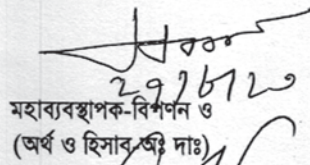 ২৭/৮/২০
মহাব্যবস্থাপক-বিপণন ও
(অর্থ ও হিসাব-অঃ দাঃ)